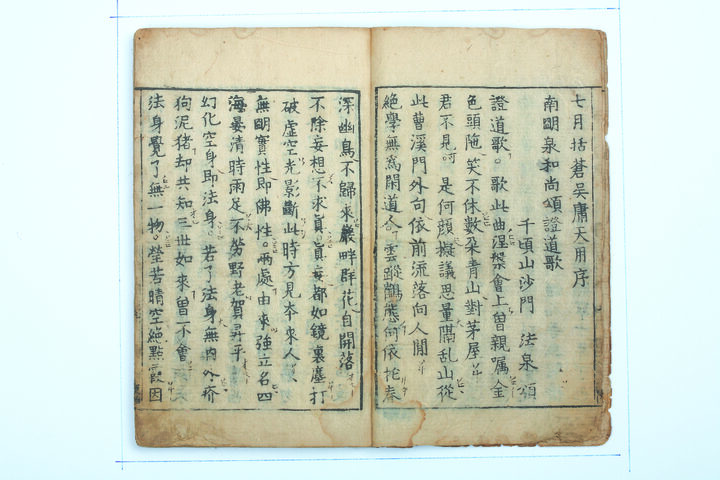 七月括蒼吴庸天用序
南明泉和尚頌證道歌
千頃山沙門 法泉 頌
證道歌。歌此曲涅槃會上曽親嘱金
色頭陁笑不休數朶青山對茅屋
君不見。是何顔擬議思量隔乱山從
此曹溪門外句依前流落向人間
絶學無爲閑道人雲蹤鶴態何依托春
深幽鳥不歸來巖畔群花自開落
不除妄想不求眞。眞妄都如鏡裏塵打
破虚空光影斷此時方見本來人
無明實性即佛性。兩處由來強立名四
海晏清時雨足不勞野老賀昇平
幻化空身即法身。若了法身無内外疥
狗泥猪却共知三世如來曽不會
法身覺了無一物。瑩若晴空絶點霞因